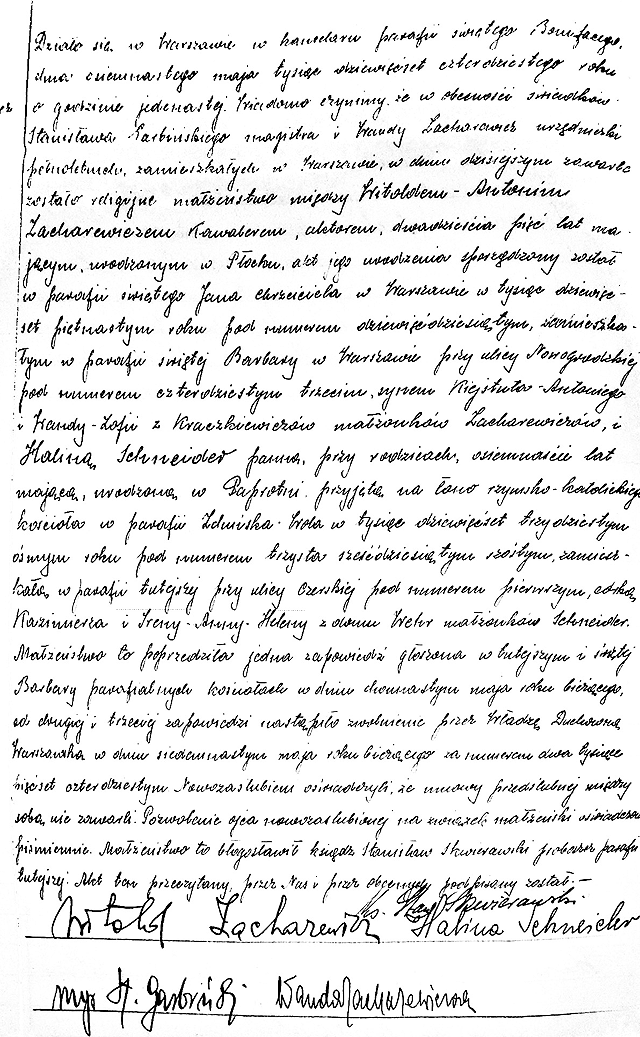 Działo się w Warszawie w kancelarii parafii świętego Bonifacego,
dnia osiemnastego maja tysiąc dziewięćset czterdziestego roku
o godzinie jedenastej. Wiadomo czynimy, że w obecności świadków
Stanisława Garbińskiego magistra i Wandy Zacharewicz urzędniczki
pełnoletnich, zamieszkałych w Warszawie, w dniu dzisiejszym zawarte
zostało religijne małżeństwo między Witoldem-Antonim
Zacharewiczem kawalerem, aktorem, dwadzieścia pięć lat ma-
jącym, urodzonym w Płocku, akt jego urodzenia sporządzony został
w parafii świętego Jana chrzciciela w Warszawie w tysiąc dziewięć-
set piętnastym roku pod numerem dziewięćdziesiątym, zamieszka-
łym w parafii świętej Barbary w Warszawie przy ulicy Nowogrodzkiej
pod numerem czterdziestym trzecim, synem Kiejstuta-Antoniego
i Wandy-Zofii z Kraczkiewiczów małżonków Zacharewiczów, i
Haliną Schneider panną, przy rodzicach, osiemnaście lat
mającą, urodzoną w Paprotni. przyjętą na łono rzymsko-katolickiego
kościoła w parafii Zduńska-Wola w tysiąc dziewięćset trzydziestym
ósmym roku pod numerem trzysta sześćdziesiątym szóstym, zamiesz-
kałą w parafii tutejszej przy ulicy Czerskiej pod numerem pierwszym, córką
Kazimierza i Ireny-Anny-Heleny z domu Wehr małżonków Schneider.
Małżeństwo to poprzedziła jedna zapowiedź głoszona w tutejszym i świętej
Barbary parafialnych kościołach w dniu dwunastym maja roku bieżącego,
od drugiej i trzeciej zapowiedzi nastąpiło zwolnienie przez Władzę Duchowną
Warszawską w dniu siedemnastym maja roku bieżącego za numerem dwa tysiące
pięćset czterdziestym Nowozaślubieni oświadczyli, że umowy przedślubnej między
sobą nie zawarli. Pozwolenie ojca nowozaślubionej na związek małżeński oświadczone
piśmiennie. Małżeństwo to błogosławił ksiądz Stanisław Skwierawski proboszcz parafii
tutejszej. Akt ten przeczytany, przez Nas i przez obecnych podpisany został.-
Ks. Skwierawski.
Witold Zacharewicz Halina Schneider
mgr St. Garbiński Wanda Zacharewiczowa